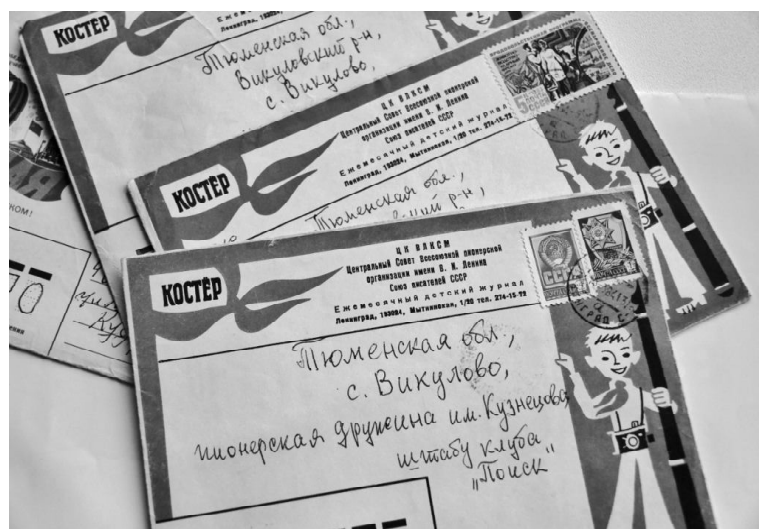 КОСТЁР
Тюменская обл.,
Викуловский р-н,
с. Викулово,
КОСТЁР
ЦК ВЛКСМ
Центральный Совет Всесоюзной пионерской
организации имени В. И. Ленина
Союз писателей СССР
Ежемесячный детский журнал
Ленинград, 193024, Мытнинская, 1/20 тел. 274-15-72
Тюменская обл.,
р-н,
КОСТЁР
ЦК ВЛКСМ
Центральный Совет Всесоюзной пионерской
организации имени В. И. Ленина
Союз писателей СССР
Ежемесячный детский журнал
Ленинград, 193024, Мытнинская, 1/20 тел. 274-15-72
СССР
Тюменская обл.,
с. Викулово,
пионерская дружина им. Кузнецова,
штабу клуба
„Поиск"